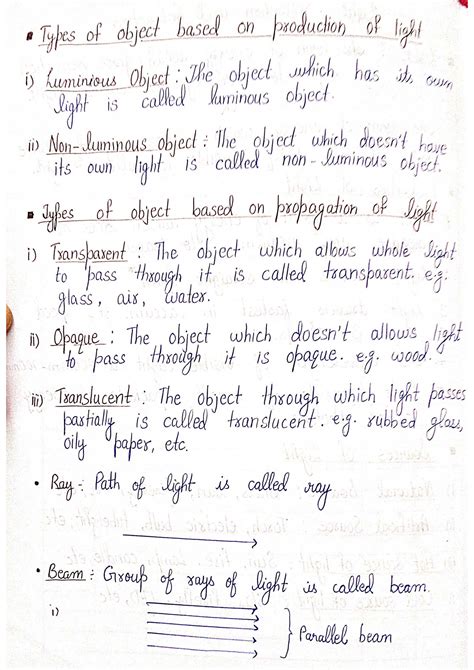 ▪ Types of object based on production of light
i) Luminious Object : The object which has its own
light is called luminous object.
ii) Non-luminous object : The object which doesn't have
its own light is called non-luminous object.
▪ Types of object based on propagation of light
i) Transparent : The object which allows whole light
to pass through it is called transparent. e.g.
glass, air, water.
ii) Opaque : The object which doesn't allows light
to pass through it is opaque. e.g. wood.
iii) Translucent : The object through which light passes
partially is called translucent. e.g. rubbed glass,
oily paper, etc.
• Ray : Path of light is called ray
• Beam : Group of rays of light is called beam.
i)
Parallel beam